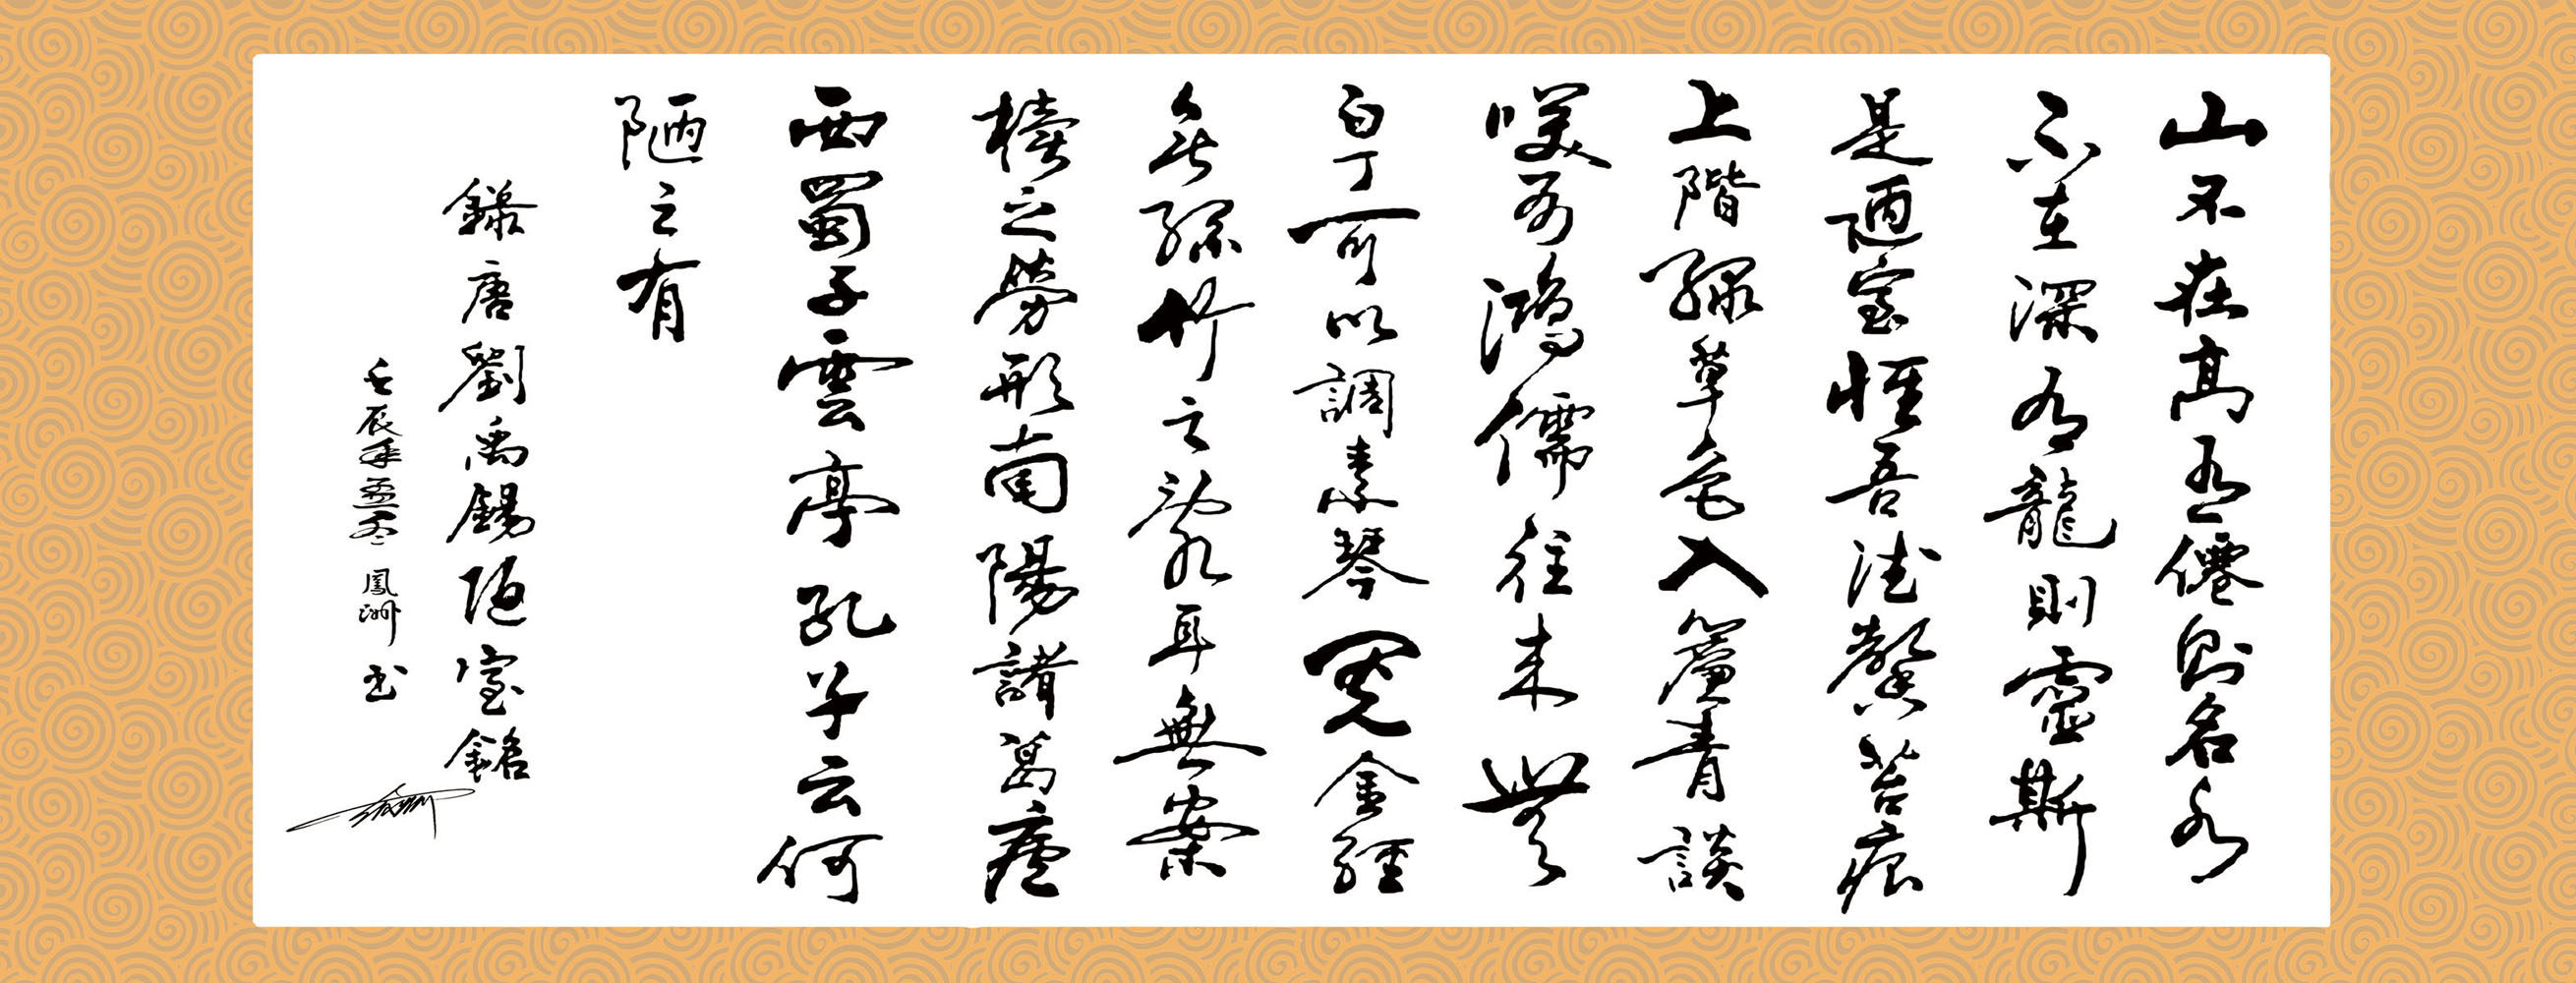 山不在高有僊則名水
不在深有龍則靈斯
是陋室惟吾德馨苔痕
上階綠草色入簾青談
笑有鴻儒往來無
白丁可以調素琴閱金經
無絲竹之亂耳無案
牘之勞形南陽諸葛廬
西蜀子雲亭孔子云何
陋之有
錄唐劉禹錫陋室銘
壬辰年孟冬鳳洲书